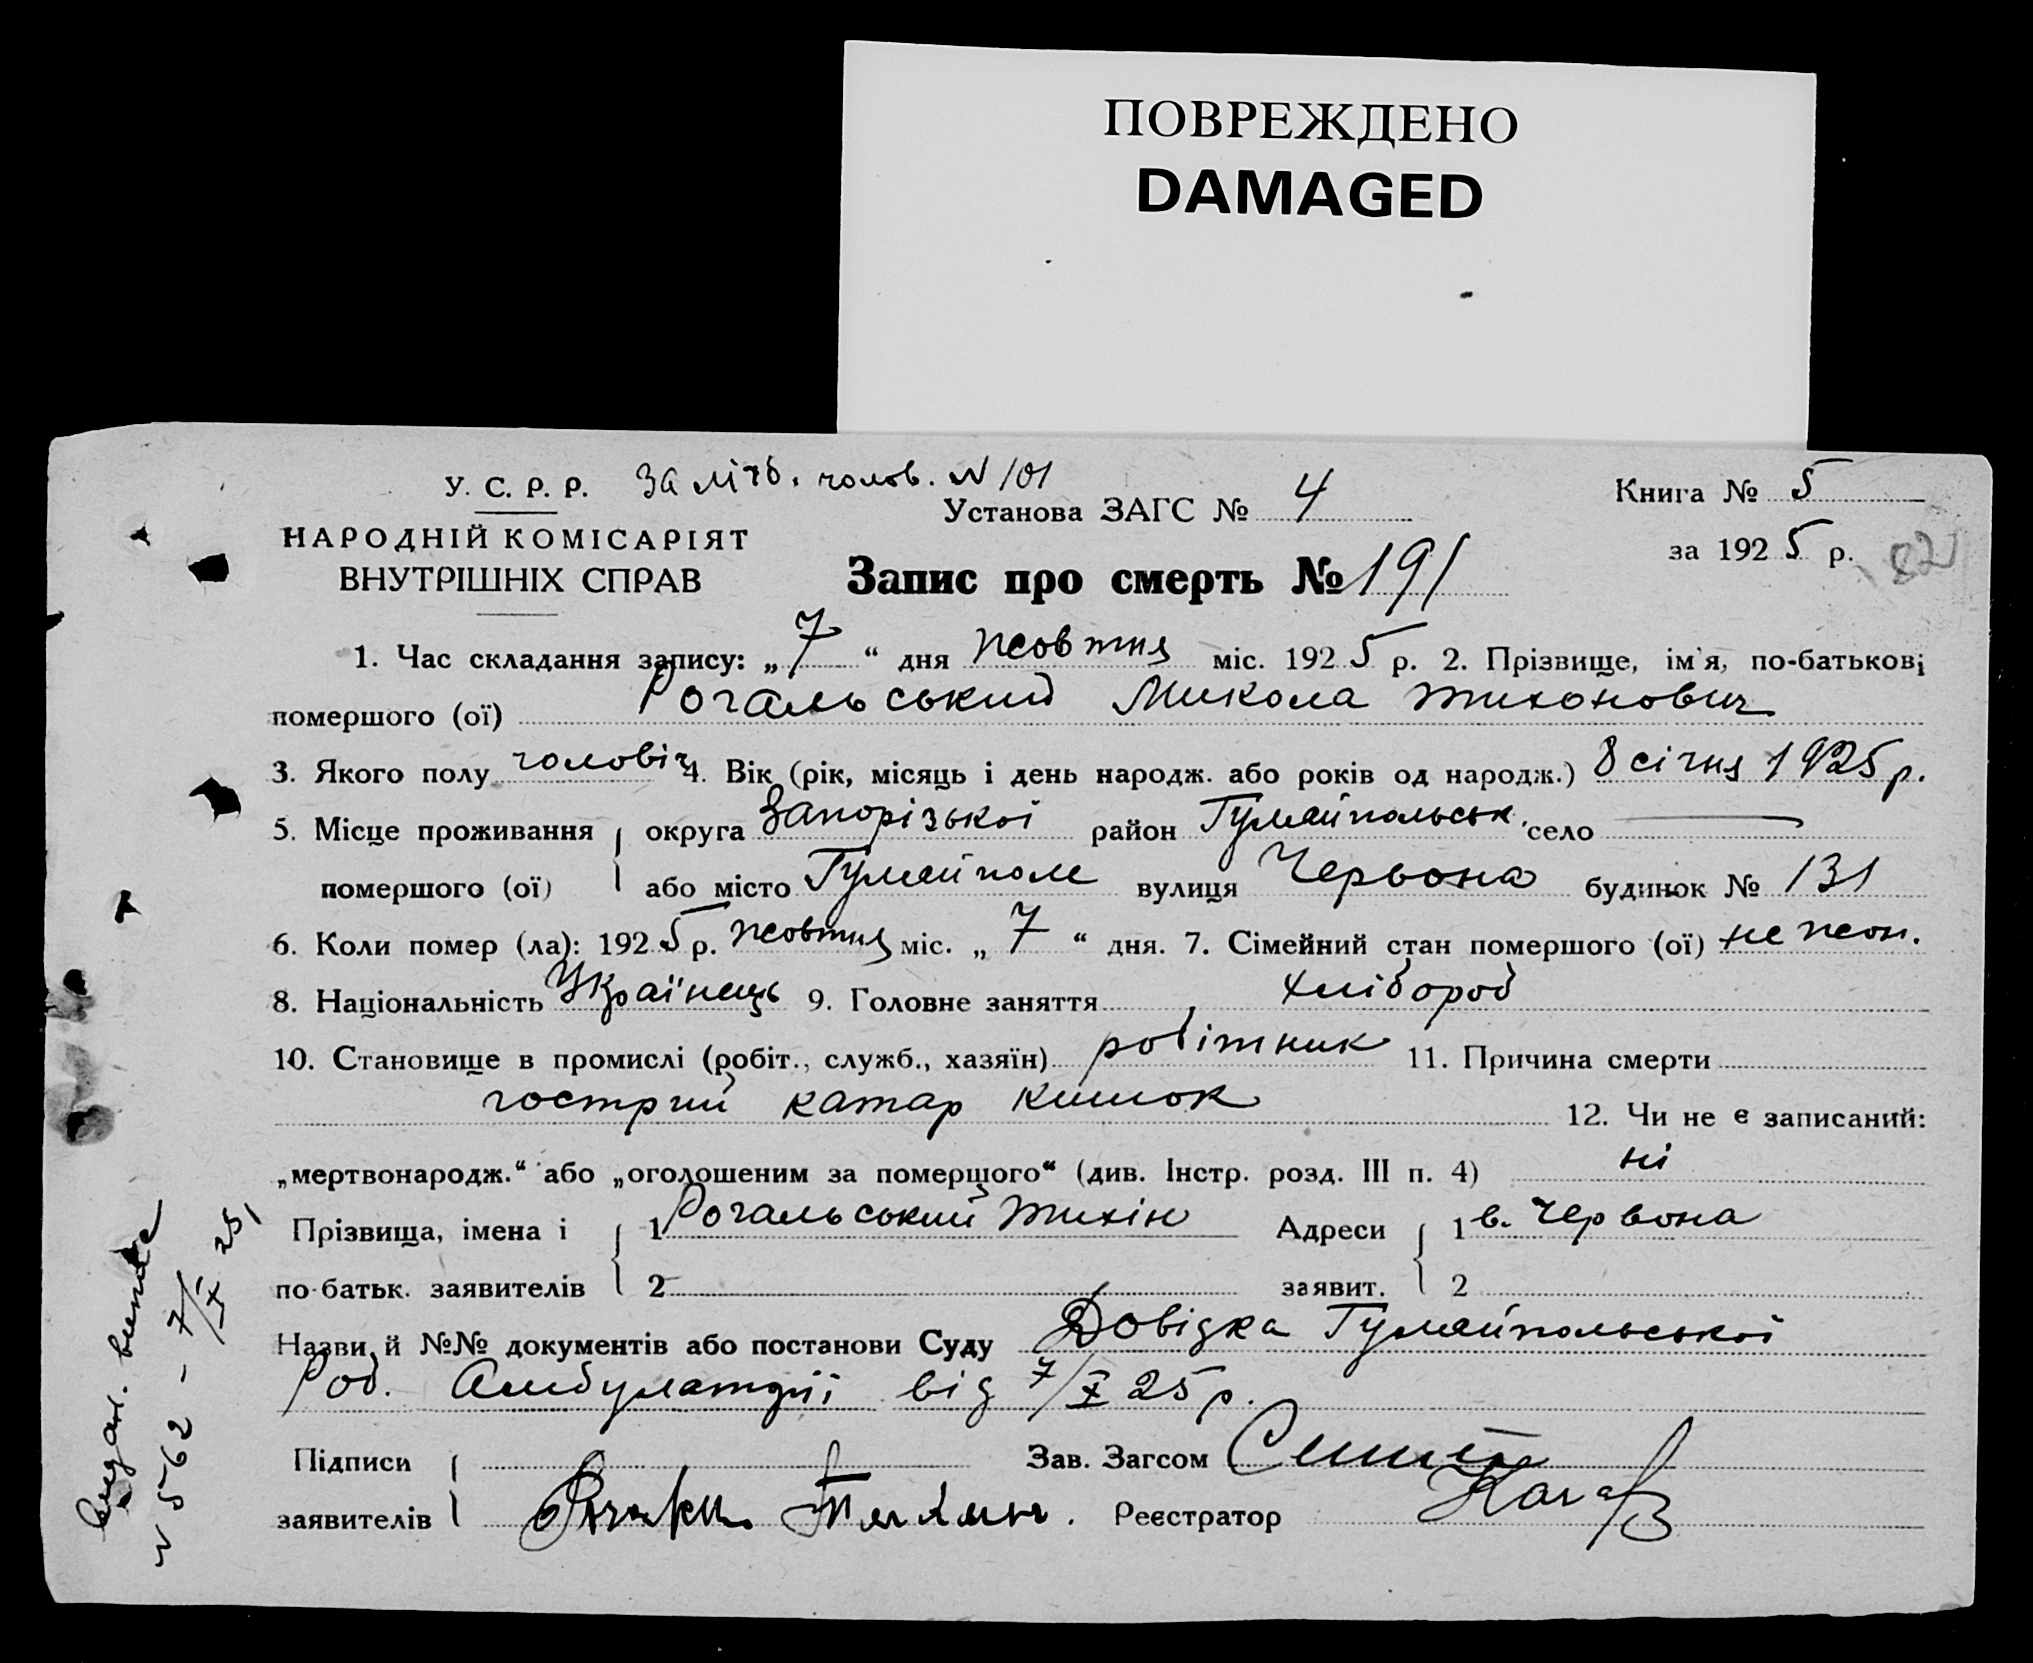 ПОВРЕЖДЕНО
DAMAGED
У. С. Р. Р. за літ. чолов. N 101
Установа ЗАГС № 4
Книга № 5
НАРОДНІЙ КОМІСАРІЯТ
ВНУТРІШНІХ СПРАВ
за 1925 р.
Запис про смерть № 191
1. Час складання запису: „7“ дня жовтня міс. 1925 р. 2. Прізвище, ім'я, по-батькові
помершого (ої) Рогальський Микола Тихонович
3. Якого полу чоловіч 4. Вік (рік, місяць і день народж. або років од народж.) 8 січня 1925 р.
5. Місце проживання округа Запорізької район Гуляйпольськ. село —
помершого (ої) або місто Гуляйполе вулиця Червона будинок № 131
6. Коли помер (ла): 1925 р. жовтня міс. „7“ дня. 7. Сімейний стан помершого (ої) не жон.
8. Національність Українець 9. Головне заняття хлібороб
10. Становище в промислі (робіт., служб., хазяїн) робітник 11. Причина смерти
гострий катар кишок 12. Чи не є записаний:
„мертвонародж.“ або „оголошеним за помершого“ (див. Інстр. розд. III п. 4) ні
Прізвища, імена і 1 Рогальський Тихін Адреси 1 в. Червона
по-батьк. заявителів 2 заявит. 2
Назви й №№ документів або постанови Суду Довідка Гуляйпольської
Роб. Амбулаторії від 7/X 25 р.
Підписи Зав. Загсом
заявителів Реєстратор
N 562 – 7/X 25